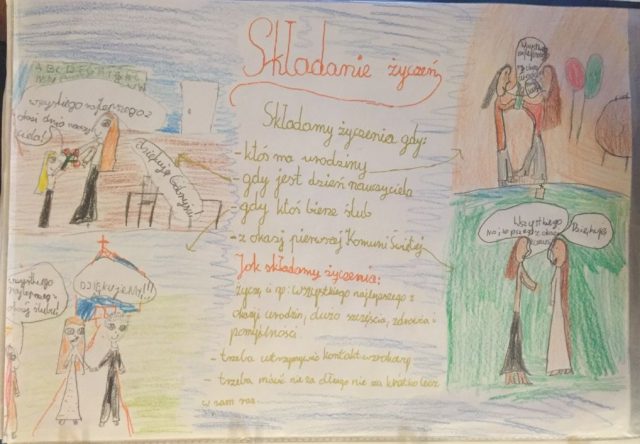 Składanie życzeń
Składamy życzenia gdy:
- ktoś ma urodziny
- gdy jest dzień nauczyciela
- gdy ktoś bierze ślub
- z okazji pierwszej Komuni świętej
Jak składamy życzenia:
życzę ci np: wszystkiego najlepszego z
okazji urodzin, dużo szczęścia, zdrowia i
pomyślności.
- trzeba utrzymywać kontakt wzrokowy
- trzeba mówić nie za długo nie za krótko lecz
w sam raz.
ABCDEFGHI
wszystkiego najlepszego z
okazji dnia nauczy-
ciela!
dziękuję
wszystkiego
najlepszego z
okazji ślubu!
DZIĘKUJEMY!!!
Wszystkiego
najlepszego
Wszystkiego
Dziękuję